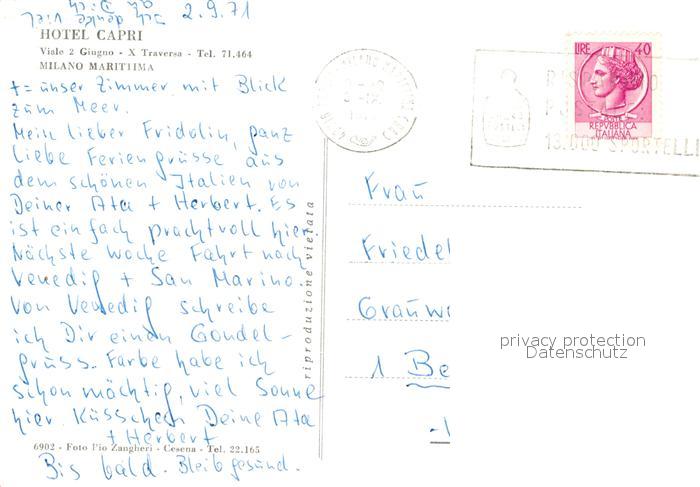 2.9.71
Ich denke viel
an Dich
HOTEL CAPRI
Viale 2 Giugno - X Traversa - Tel. 71.464
MILANO MARITTIMA
+ = unser Zimmer mit Blick
zum Meer.
Mein lieber Fridolin, ganz
liebe Feriengrüsse aus
dem schönen Italien von
Deiner Ata + Herbert. Es
ist einfach prachtvoll hier.
Nächste Woche Fahrt nach
Venedig + San Marino.
Von Venedig schreibe
ich Dir einen Gondel-
gruss. Farbe habe ich
schon mächtig, viel Sonne
hier. Küsschen Deine Ata
+ Herbert
6902 - Foto Pio Zangheri - Cesena - Tel. 22.165
Bis bald. Bleib gesund.
riproduzione vietata
LIRE 40
POSTE
REPVBBLICA
ITALIANA
13.000 SPORTELLI
Frau
Friedel
Grauw
1 Be
privacy protection
Datenschutz